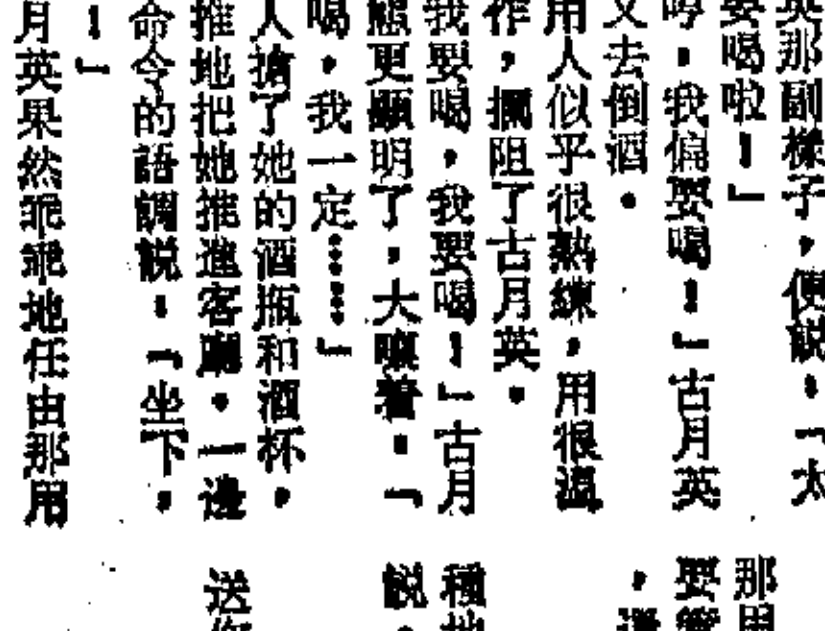 英那副樣子，便説：「太
要喝啦！」
哼，我偏要喝！」古月英
又去倒酒。
用人似乎很熟練，用很溫
作，攔阻了古月英。
我要喝，我要喝！」古月
態更顯明了，大嚷着：「
喝，我一定……」
人搶了她的酒瓶和酒杯，
推地把她推進客廳。一邊
命令的語調説：「坐下，
！」
月英果然乖乖地任由那用
那用
要管
，還
種地
説。
送你